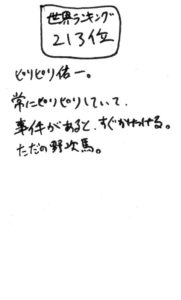 世界ランキング
213位
ピリピリ佑一。
常にピリピリしていて、
事件があると、すぐかけつける。
ただの野次馬。